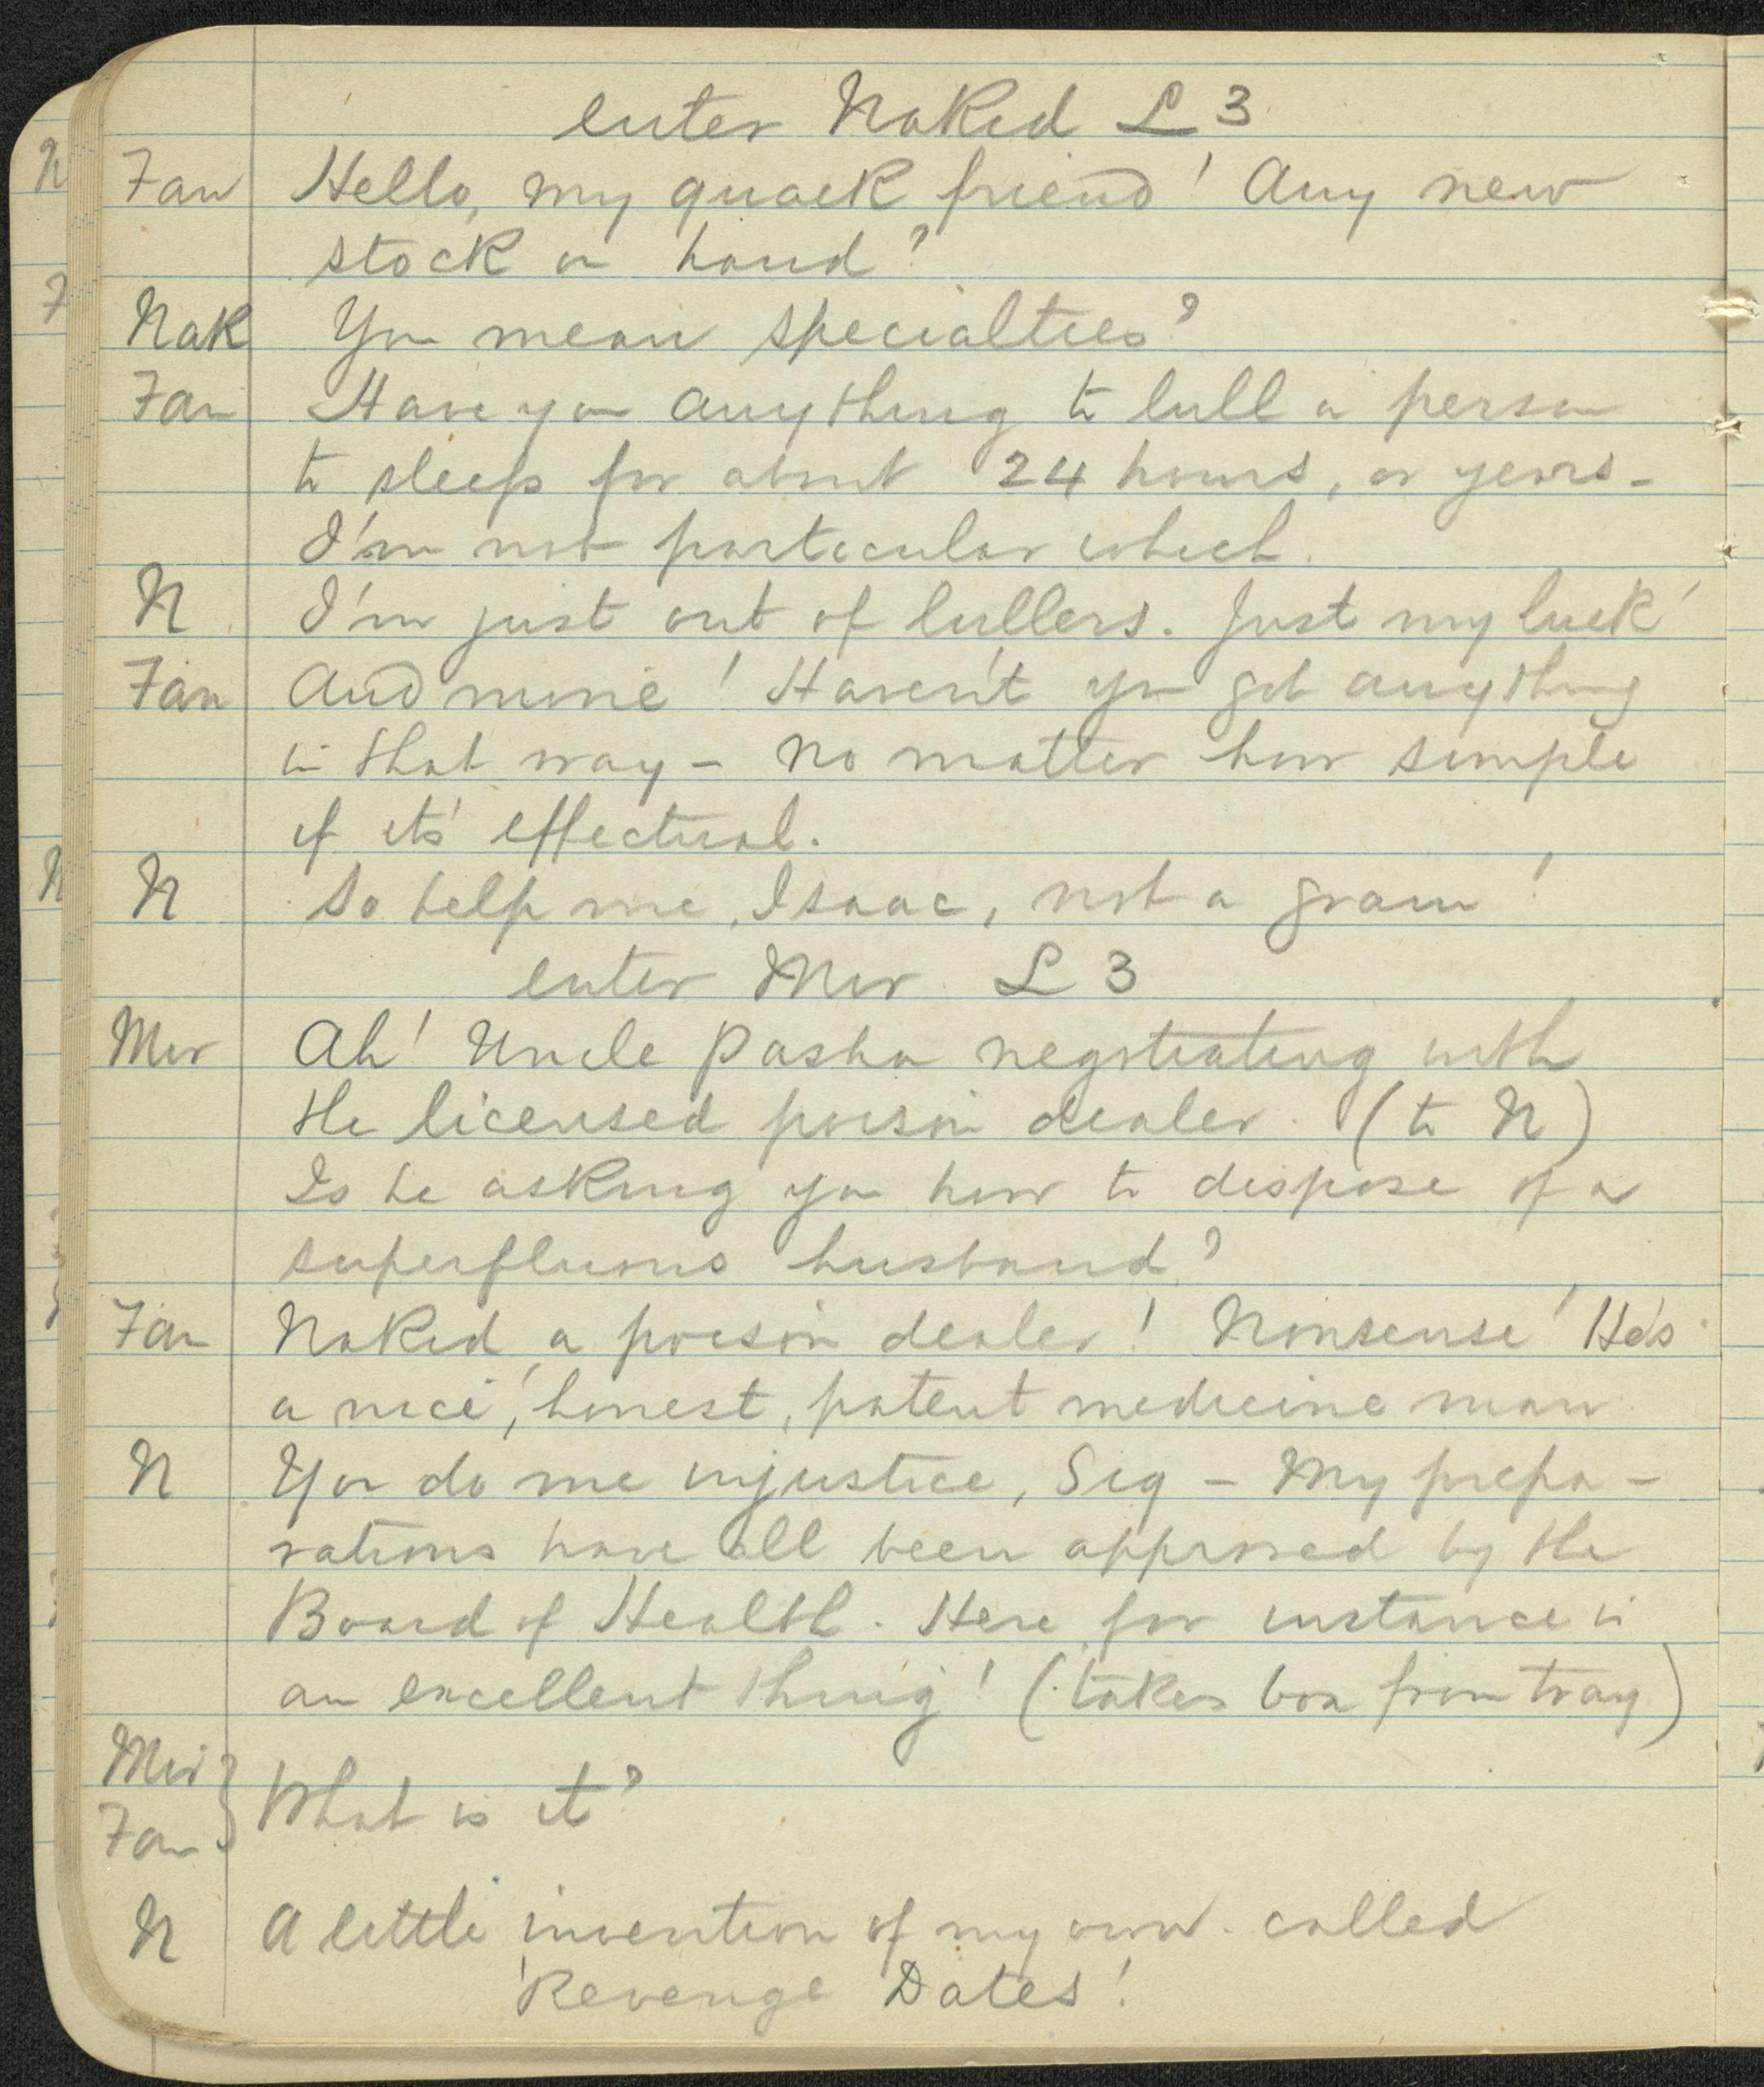 enter Naked L 3
Fan Hello, my quack friend! Any new
stock on hand?
Nak You mean specialties?
Fan Have you anything to lull a person
to sleep for about 24 hours, or years -
I'm not particular which.
N I'm just out of lullers. Just my luck!
Fan And mine! Haven't you got anything
in that way - no matter how simple
if its' effectual.
N So help me, Isaac, not a gram!
enter Mir L 3
Mir Ah! Uncle Pasha negotiating with
the licensed poison dealer. (to N)
Is he asking you how to dispose of a
superfluous husband?
Fan Naked a poison dealer! Nonsense! He's
a nice, honest, patent medicine man
N You do me injustice, Sig - My prepa-
rations have all been approved by the
Board of Health. Here for instance is
an excellent thing! (takes box from tray)
Mir
Fan } What is it?
N A little invention of my own. called
'Revenge Dates!'